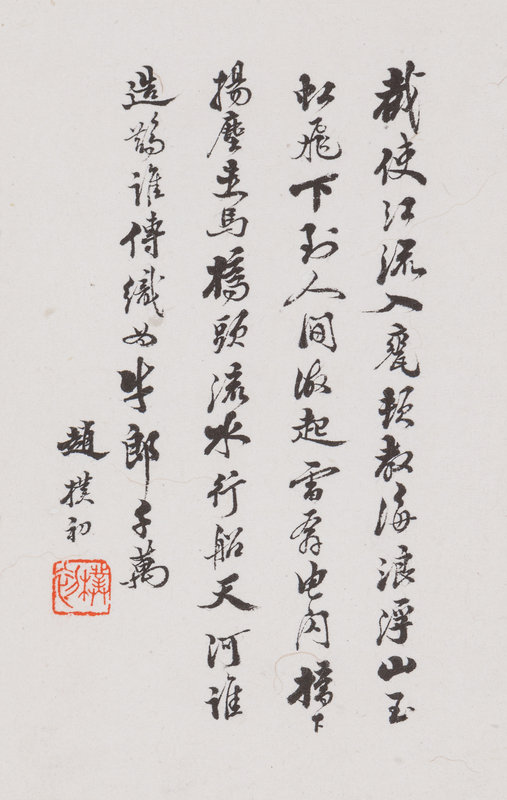 截使江流入甕頓教海浪浮山玉
虹飛下到人間激起雷奔电閃橋下
揚塵走馬橋頭流水行船天河誰
造鵲誰傳織女牛郎千萬
趙樸初
樸初